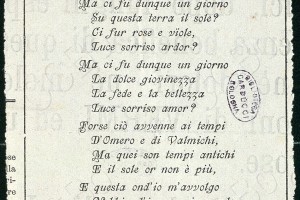 Ma ci fu dunque un giorno
Su questa terra il sole?
Ci fur rose e viole,
Luce sorriso ardor?
Ma ci fu dunque un giorno
La dolce giovinezza
La fede e la bellezza
Luce sorriso amor?
Forse ciò avvenne ai tempi
D'Omero e di Valmichi,
Ma quei son tempi antichi
E il sole or non è più,
E questa ond'io m'avvolgo
BIBLIOTECA
CARDUCCI
BOLOGNA